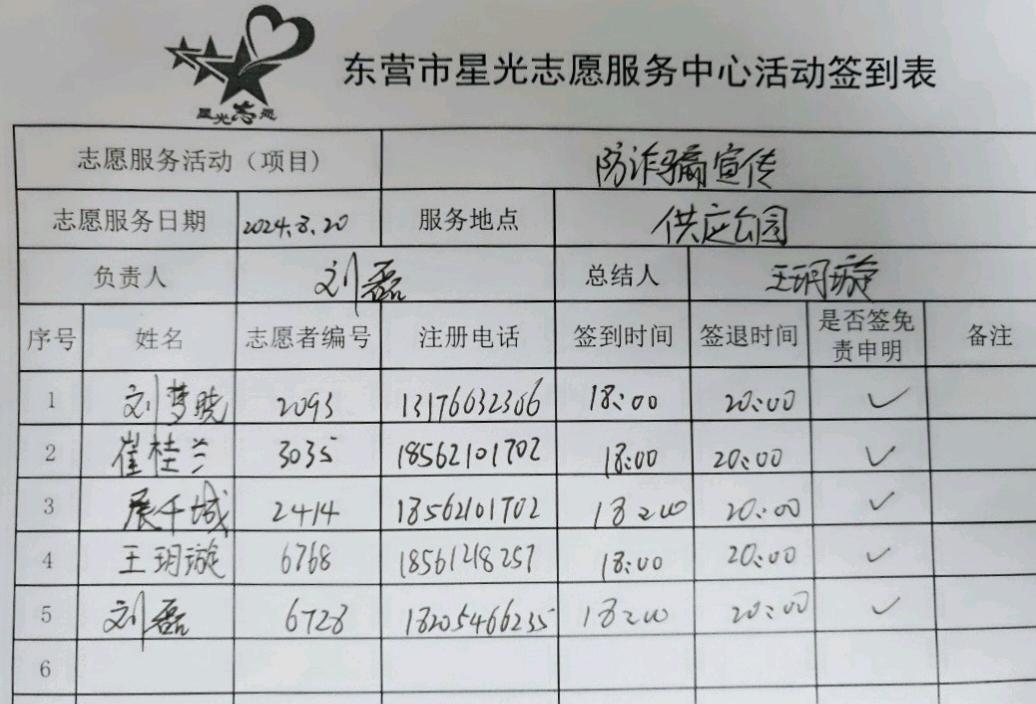 星光志愿
东营市星光志愿服务中心活动签到表
志愿服务活动（项目） 防诈骗宣传
志愿服务日期 2024.8.20 服务地点 供应公园
负责人 刘磊 总结人 王玥璇
序号 姓名 志愿者编号 注册电话 签到时间 签退时间 是否签免责申明 备注
1 刘梦晓 2093 13176032306 18:00 20:00 ✓
2 崔桂兰 3035 18562101702 18:00 20:00 ✓
3 展千城 2414 18562101702 18:00 20:00 ✓
4 王玥璇 6768 18561218257 18:00 20:00 ✓
5 刘磊 6728 18205466235 18:00 20:00 ✓
6